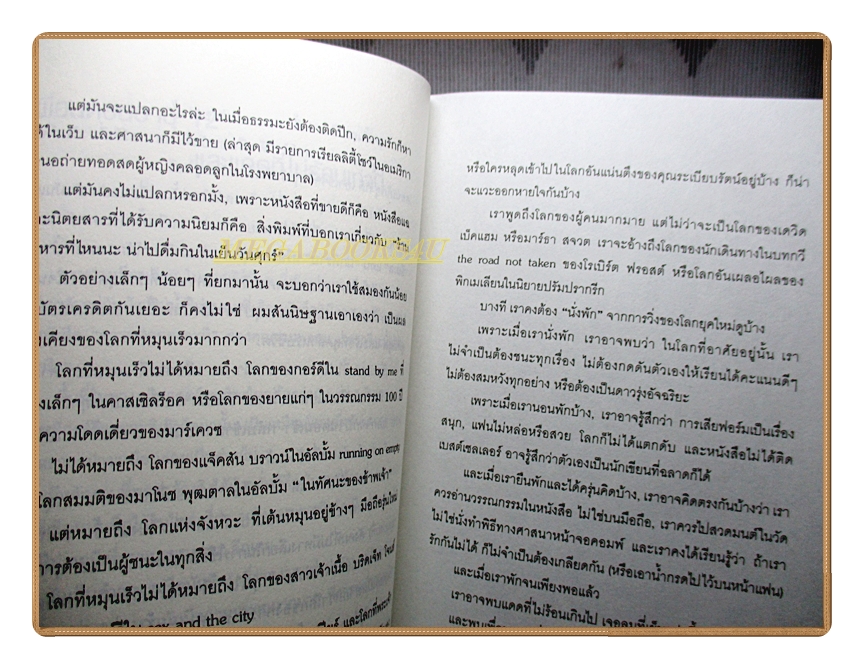 แต่มันจะแปลกอะไรล่ะ ในเมื่อธรรมะยังต้องติดปีก, ความรักก็หา
ได้ในเว็บ และศาสนาก็มีไว้ขาย (ล่าสุด มีรายการเรียลลิตี้โชว์ในอเมริกา
นอถ่ายทอดสดผู้หญิงคลอดลูกในโรงพยาบาล)
แต่มันคงไม่แปลกหรอกมั้ง, เพราะหนังสือที่ขายดีก็คือ หนังสือแฉ
ละนิตยสารที่ได้รับความนิยมก็คือ สิ่งพิมพ์ที่บอกเราเกี่ยวกับ "ร้าน
หารที่ไหนนะ น่าไปดื่มกินในเย็นวันศุกร์"
MEGABOOKS4U
ตัวอย่างเล็กๆ น้อยๆ ที่ยกมานั้น จะบอกว่าเราใช้สมองกันน้อย
บัตรเครดิตกันเยอะ ก็คงไม่ใช่ ผมสันนิษฐานเอาเองว่า เป็นผล
งเคียงของโลกที่หมุนเร็วมากกว่า
โลกที่หมุนเร็วไม่ได้หมายถึง โลกของกอร์ดีใน stand by me ที่
งเล็กๆ ในคาสเซิลร็อค หรือโลกของยายแก่ๆ ในวรรณกรรม 100 ปี
ความโดดเดี่ยวของมาร์เควซ
ไม่ได้หมายถึง โลกของแจ็คสัน บราวน์ในอัลบั้ม running on empty
โลกสมมติของมาโนช พุฒตาลในอัลบั้ม "ในทัศนะของข้าพเจ้า"
แต่หมายถึง โลกแห่งจังหวะ ที่เต้นหมุนอยู่ข้างๆ มือถือรุ่นใหม่
การต้องเป็นผู้ชนะในทุกสิ่ง
โลกที่หมุนเร็วไม่ได้หมายถึง โลกของสาวเจ้าเนื้อ บริดเจ็ท โจนส์
sex and the city
และโลกที่
หรือใครหลุดเข้าไปในโลกอันแน่นตึงของคุณระเบียบรัตน์อยู่บ้าง ก็น่า
จะแวะออกหายใจกันบ้าง
เราพูดถึงโลกของผู้คนมากมาย แต่ไม่ว่าจะเป็นโลกของเดวิด
เบ็คแฮม หรือมาร์ธา สจวต เราจะอ้างถึงโลกของนักเดินทางในบทกวี
the road not taken ของโรเบิร์ต ฟรอสต์ หรือโลกอันเผลอไผลของ
พิกเมเลียนในนิยายปรัมปรากรีก
บางที เราคงต้อง "นั่งพัก" จากการวิ่งของโลกยุคใหม่ดูบ้าง
เพราะเมื่อเรานั่งพัก เราอาจพบว่า ในโลกที่อาศัยอยู่นั้น เรา
ไม่จำเป็นต้องชนะทุกเรื่อง ไม่ต้องกดดันตัวเองให้เรียนได้คะแนนดีๆ
ไม่ต้องสมหวังทุกอย่าง หรือต้องเป็นดาวรุ่งอัจฉริยะ
เพราะเมื่อเรานอนพักบ้าง, เราอาจรู้สึกว่า การเสียฟอร์มเป็นเรื่อง
สนุก, แฟนไม่หล่อหรือสวย โลกก็ไม่ได้แตกดับ และหนังสือไม่ได้ติด
เบสต์เซลเลอร์ อาจรู้สึกว่าตัวเองเป็นนักเขียนที่ฉลาดก็ได้
และเมื่อเรายืนพักและได้ครุ่นคิดบ้าง, เราอาจคิดตรงกันบ้างว่า เรา
ควรอ่านวรรณกรรมในหนังสือ ไม่ใช่บนมือถือ, เราควรไปสวดมนต์ในวัด
ไม่ใช่นั่งทำพิธีทางศาสนาหน้าจอคอมพ์ และเราคงได้เรียนรู้ว่า ถ้าเรา
รักกันไม่ได้ ก็ไม่จำเป็นต้องเกลียดกัน (หรือเอาน้ำกรดไปไว้บนหน้าแฟน)
และเมื่อเราพักจนเพียงพอแล้ว
เราอาจพบแดดที่ไม่ร้อนเกินไป